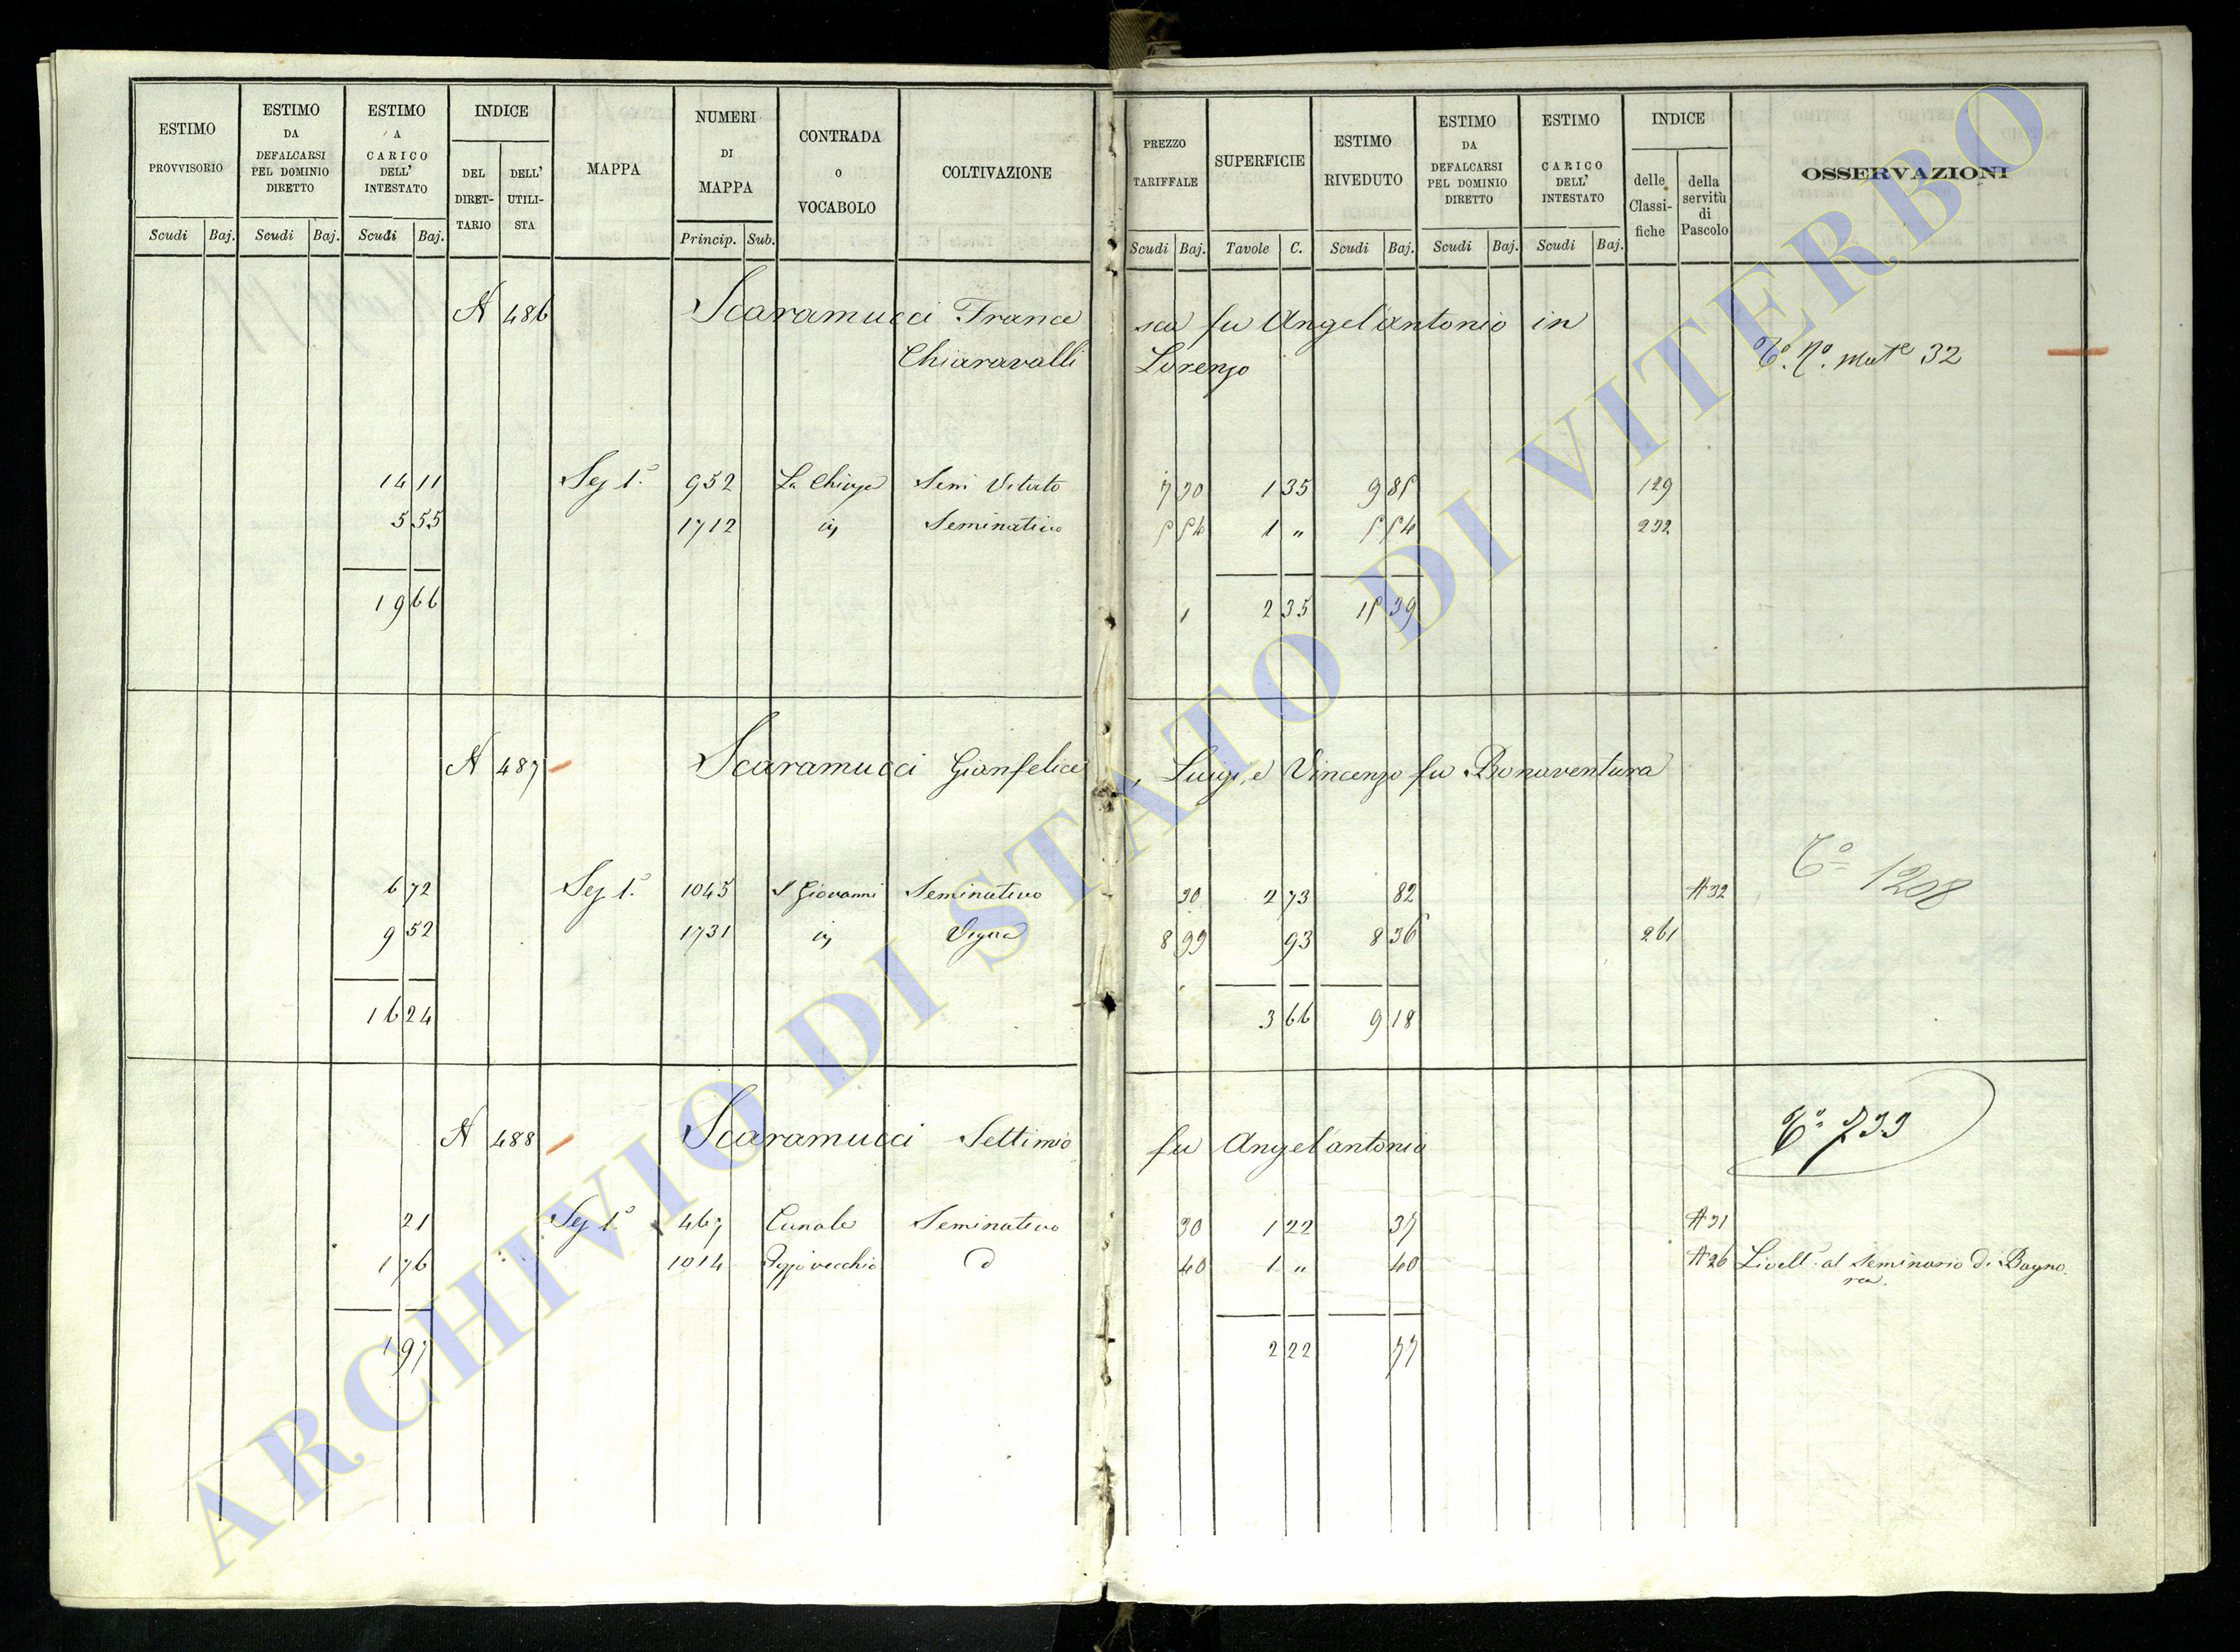 ESTIMO PROVVISORIO | ESTIMO DA DEFALCARSI PEL DOMINIO DIRETTO | ESTIMO A CARICO DELL' INTESTATO | INDICE DEL DIRET-TARIO | DELL' UTILI-STA | MAPPA | NUMERI DI MAPPA | CONTRADA O VOCABOLO | COLTIVAZIONE | PREZZO TARIFFALE | SUPERFICIE | ESTIMO RIVEDUTO | ESTIMO DA DEFALCARSI PEL DOMINIO DIRETTO | ESTIMO CARICO DELL' INTESTATO | INDICE delle Classi-fiche | della servitù di Pascolo | OSSERVAZIONI
Scudi Baj. Scudi Baj. Scudi Baj. Princip. Sub. Scudi Baj. Tavole C. Scudi Baj. Scudi Baj. Scudi Baj.
N 486 Scaramucci France sca fu Angel'antonio in
Chiaravalli Lorenzo Tº. Nº. Mate 32
14 11 Sez 1ª 952 La Chiusa Semi Vitato 7 30 1 35 9 85 129
5 55 1712 id Seminativo 5 54 1 " 5 54 232
19 66 2 35 15 39
N 487 Scaramucci Gianfelice, Luigi, e Vincenzo fu Bonaventura
Tº 1208
6 72 Sez 1ª 1045 S Giovanni Seminativo 30 2 73 82 A 32
9 52 1731 id Vigna 8 99 93 8 36 261
16 24 3 66 9 18
N 488 Scaramucci Settimio fu Angel'antonio Tº 733
21 Sez 1ª 467 Canale Seminativo 30 1 22 37 A 31
1 76 1014 Pogjovecchio d 40 1 " 40 A 26 Livell. al Seminario di Bagno.
rea.
1 97 2 22 77
ARCHIVIO DI STATO DI VITERBO